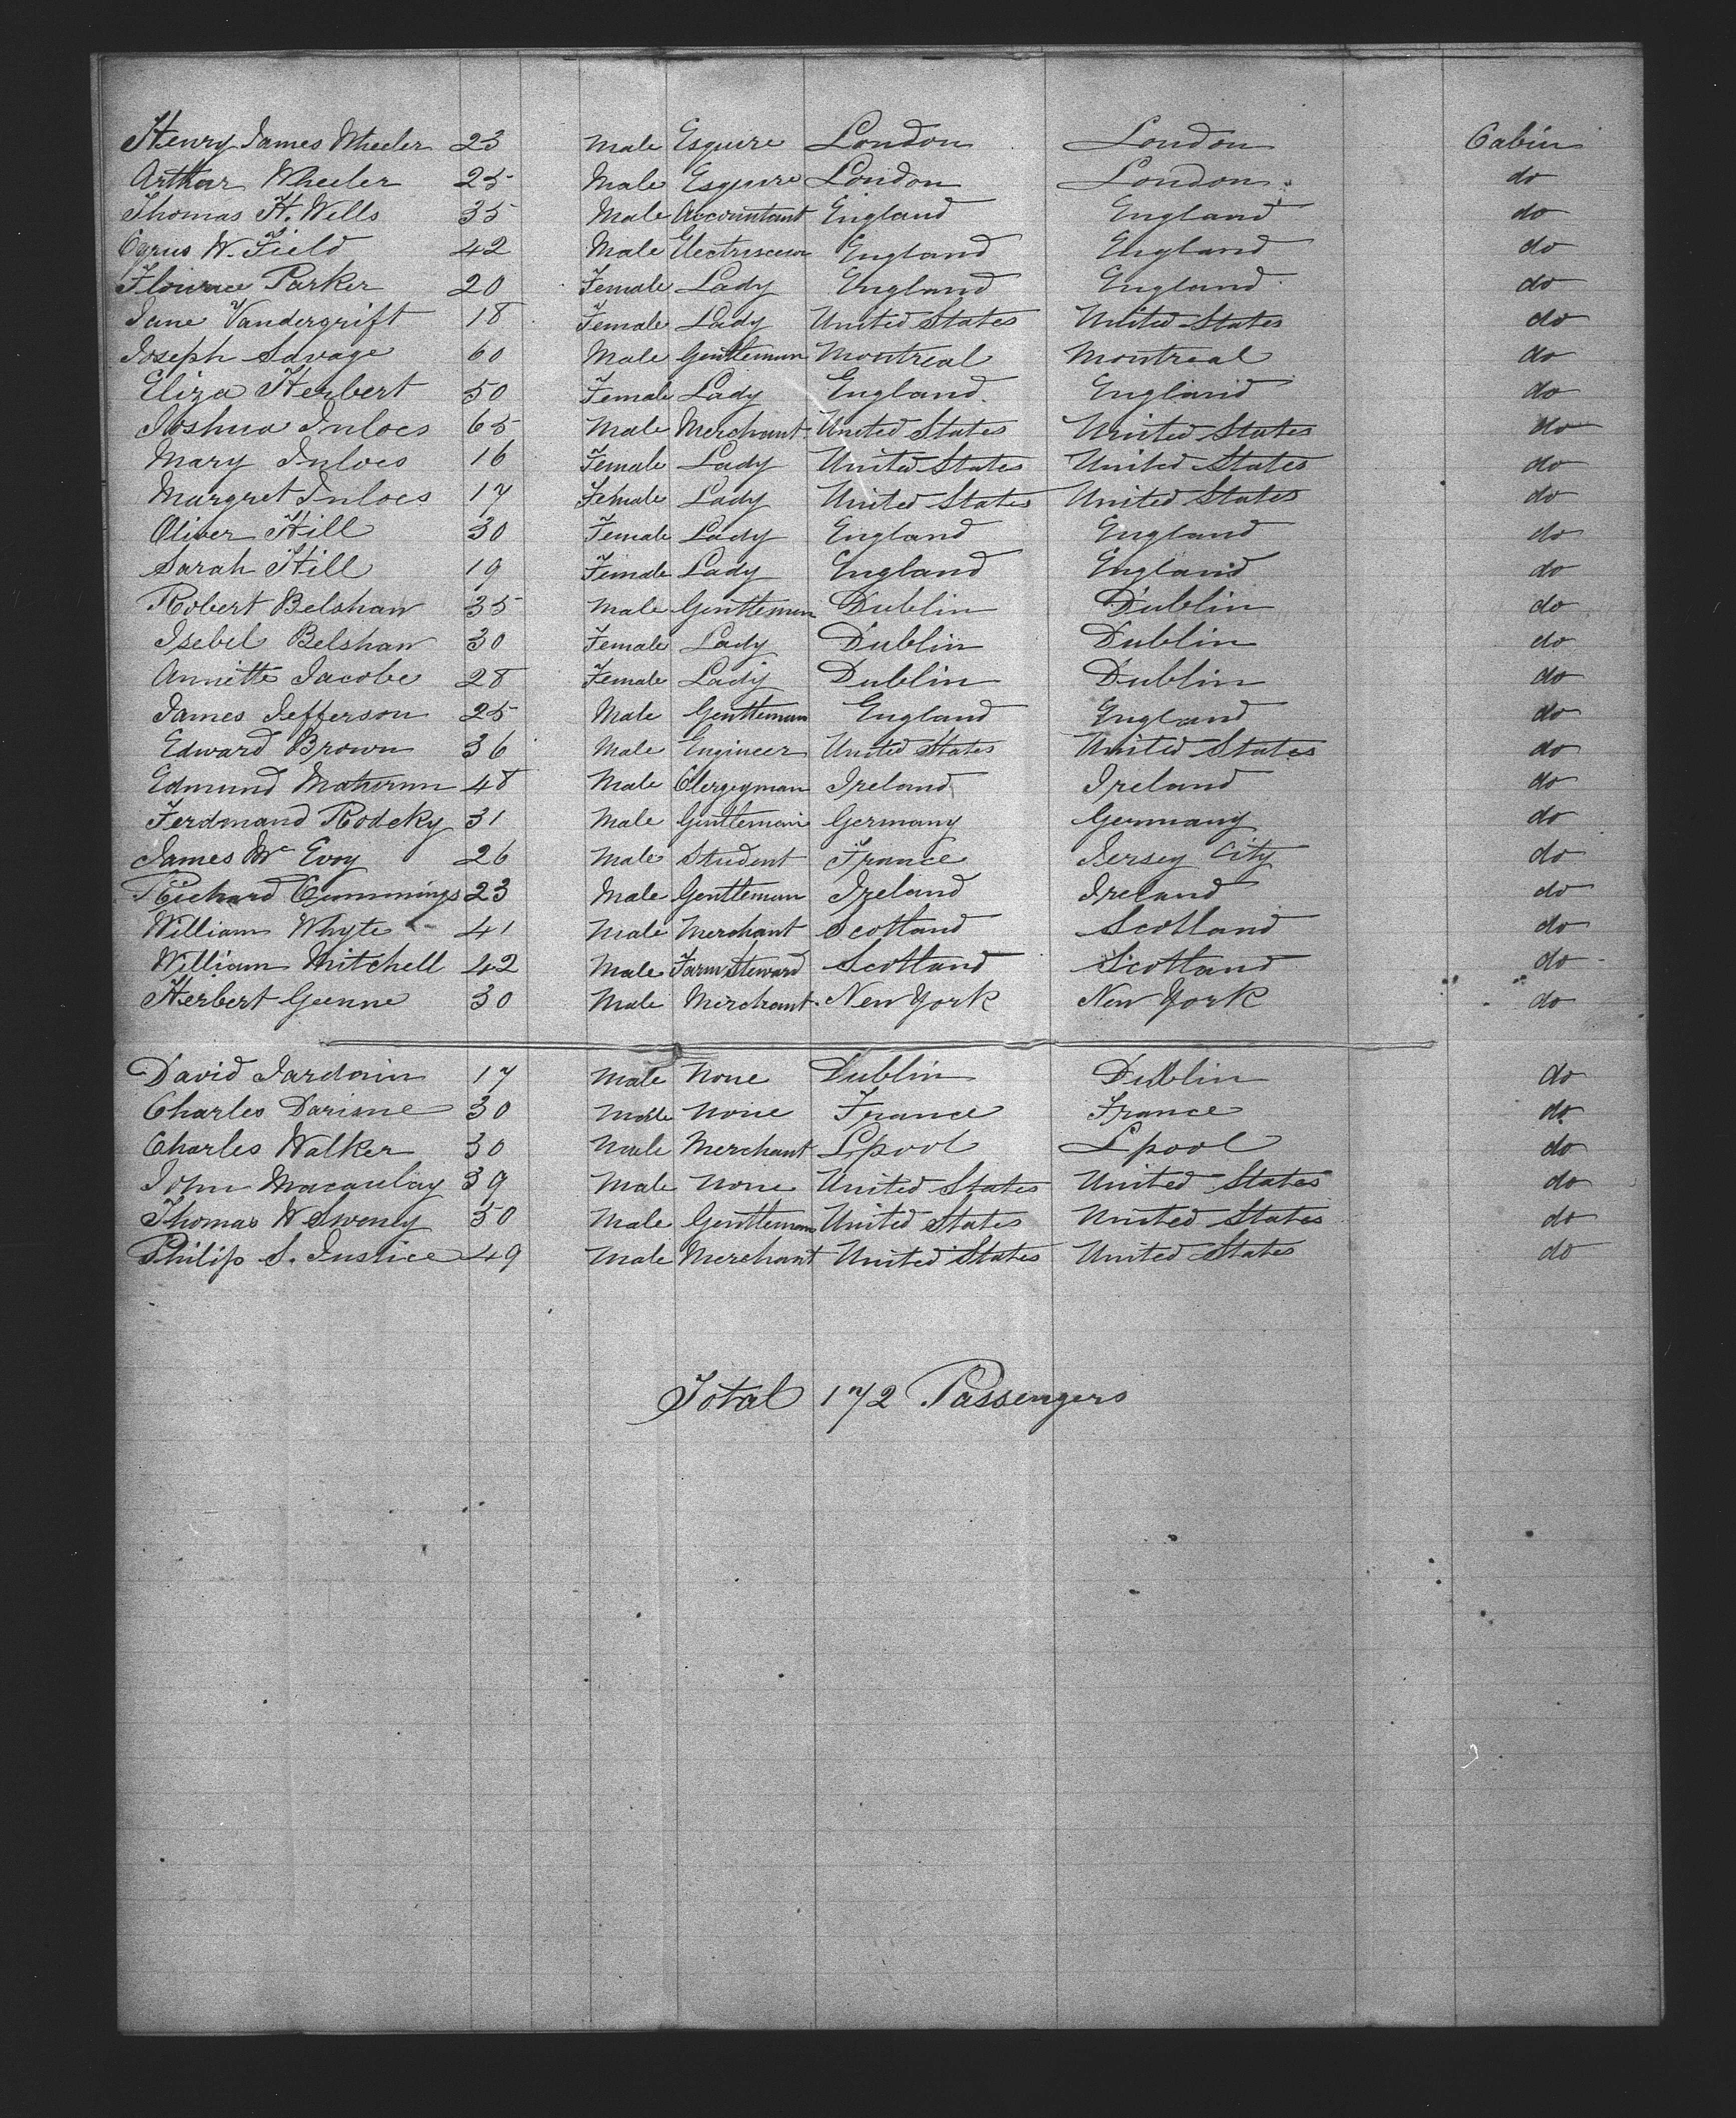 Henry James Wheeler 23 Male Esquire London London Cabin
Arthur Wheeler 25 Male Esquire London London do
Thomas H. Wells 35 Male Accountant England England do
Cyrus W. Field 42 Male England England do
Florence Parker 20 Female Lady England England do
Jane Vandergrift 18 Female Lady United States United States do
Joseph Savage 60 Male Gentleman Montreal Montreal do
Eliza Herbert 50 Female Lady England England do
Joshua Inloes 65 Male Merchant United States United States do
Mary Inloes 16 Female Lady United States United States do
Margret Inloes 17 Female Lady United States United States do
Oliver Hill 30 Female Lady England England do
Sarah Hill 19 Female Lady England England do
Robert Belshaw 35 Male Gentleman Dublin Dublin do
Isebel Belshaw 30 Female Lady Dublin Dublin do
Annette Jacobe 28 Female Lady Dublin Dublin do
James Jefferson 25 Male Gentleman England England do
Edward Brown 36 Male Engineer United States United States do
Edmund 48 Male Clergyman Ireland Ireland do
Ferdinand Rodeky 31 Male Gentleman Germany Germany do
James Mc Evoy 26 Male Student France Jersey City do
Richard Cummings 23 Male Gentleman Ireland Ireland do
William Whyte 41 Male Merchant Scotland Scotland do
William Mitchell 42 Male Farm Steward Scotland Scotland do
Herbert 30 Male Merchant New York New York do
David 17 Male None Dublin Dublin do
Charles 30 Male None France France do
Charles Walker 30 Male Merchant Lpool Lpool do
John Macaulay 39 Male None United States United States do
Thomas W Sweney 50 Male Gentleman United States United States do
Philip S. Justice 49 Male Merchant United States United States do
Total 172 Passengers